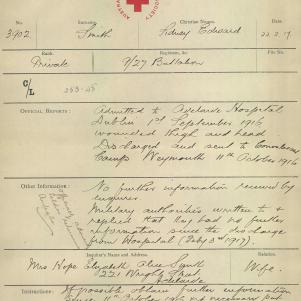 AUSTRA
SOCIETY
No. Surname. Christian Names.
3902 Smith Sidney Edward 22.2.17.
Rank. Regiment, &c. File No.
Private 9/27 Battalion
C/L
OFFICIAL REPORTS: Admitted to Adelaide Hospital
Dublin 1st September 1916
wounded thigh and head
Discharged and sent to Command
Camp Weymouth 11th October 1916
Other Information: No further information received by
enquirer
Military authorities written to &
replied that they had no further
information since the discharge
from Hospital (Feby 3rd 1917).
Inquirer's Name and Address Relation
Mrs Hope Elizabeth Olive Smith Wife.
221 Wright Street
Adelaide
If possible obtain further information
since 11th October 1916 &